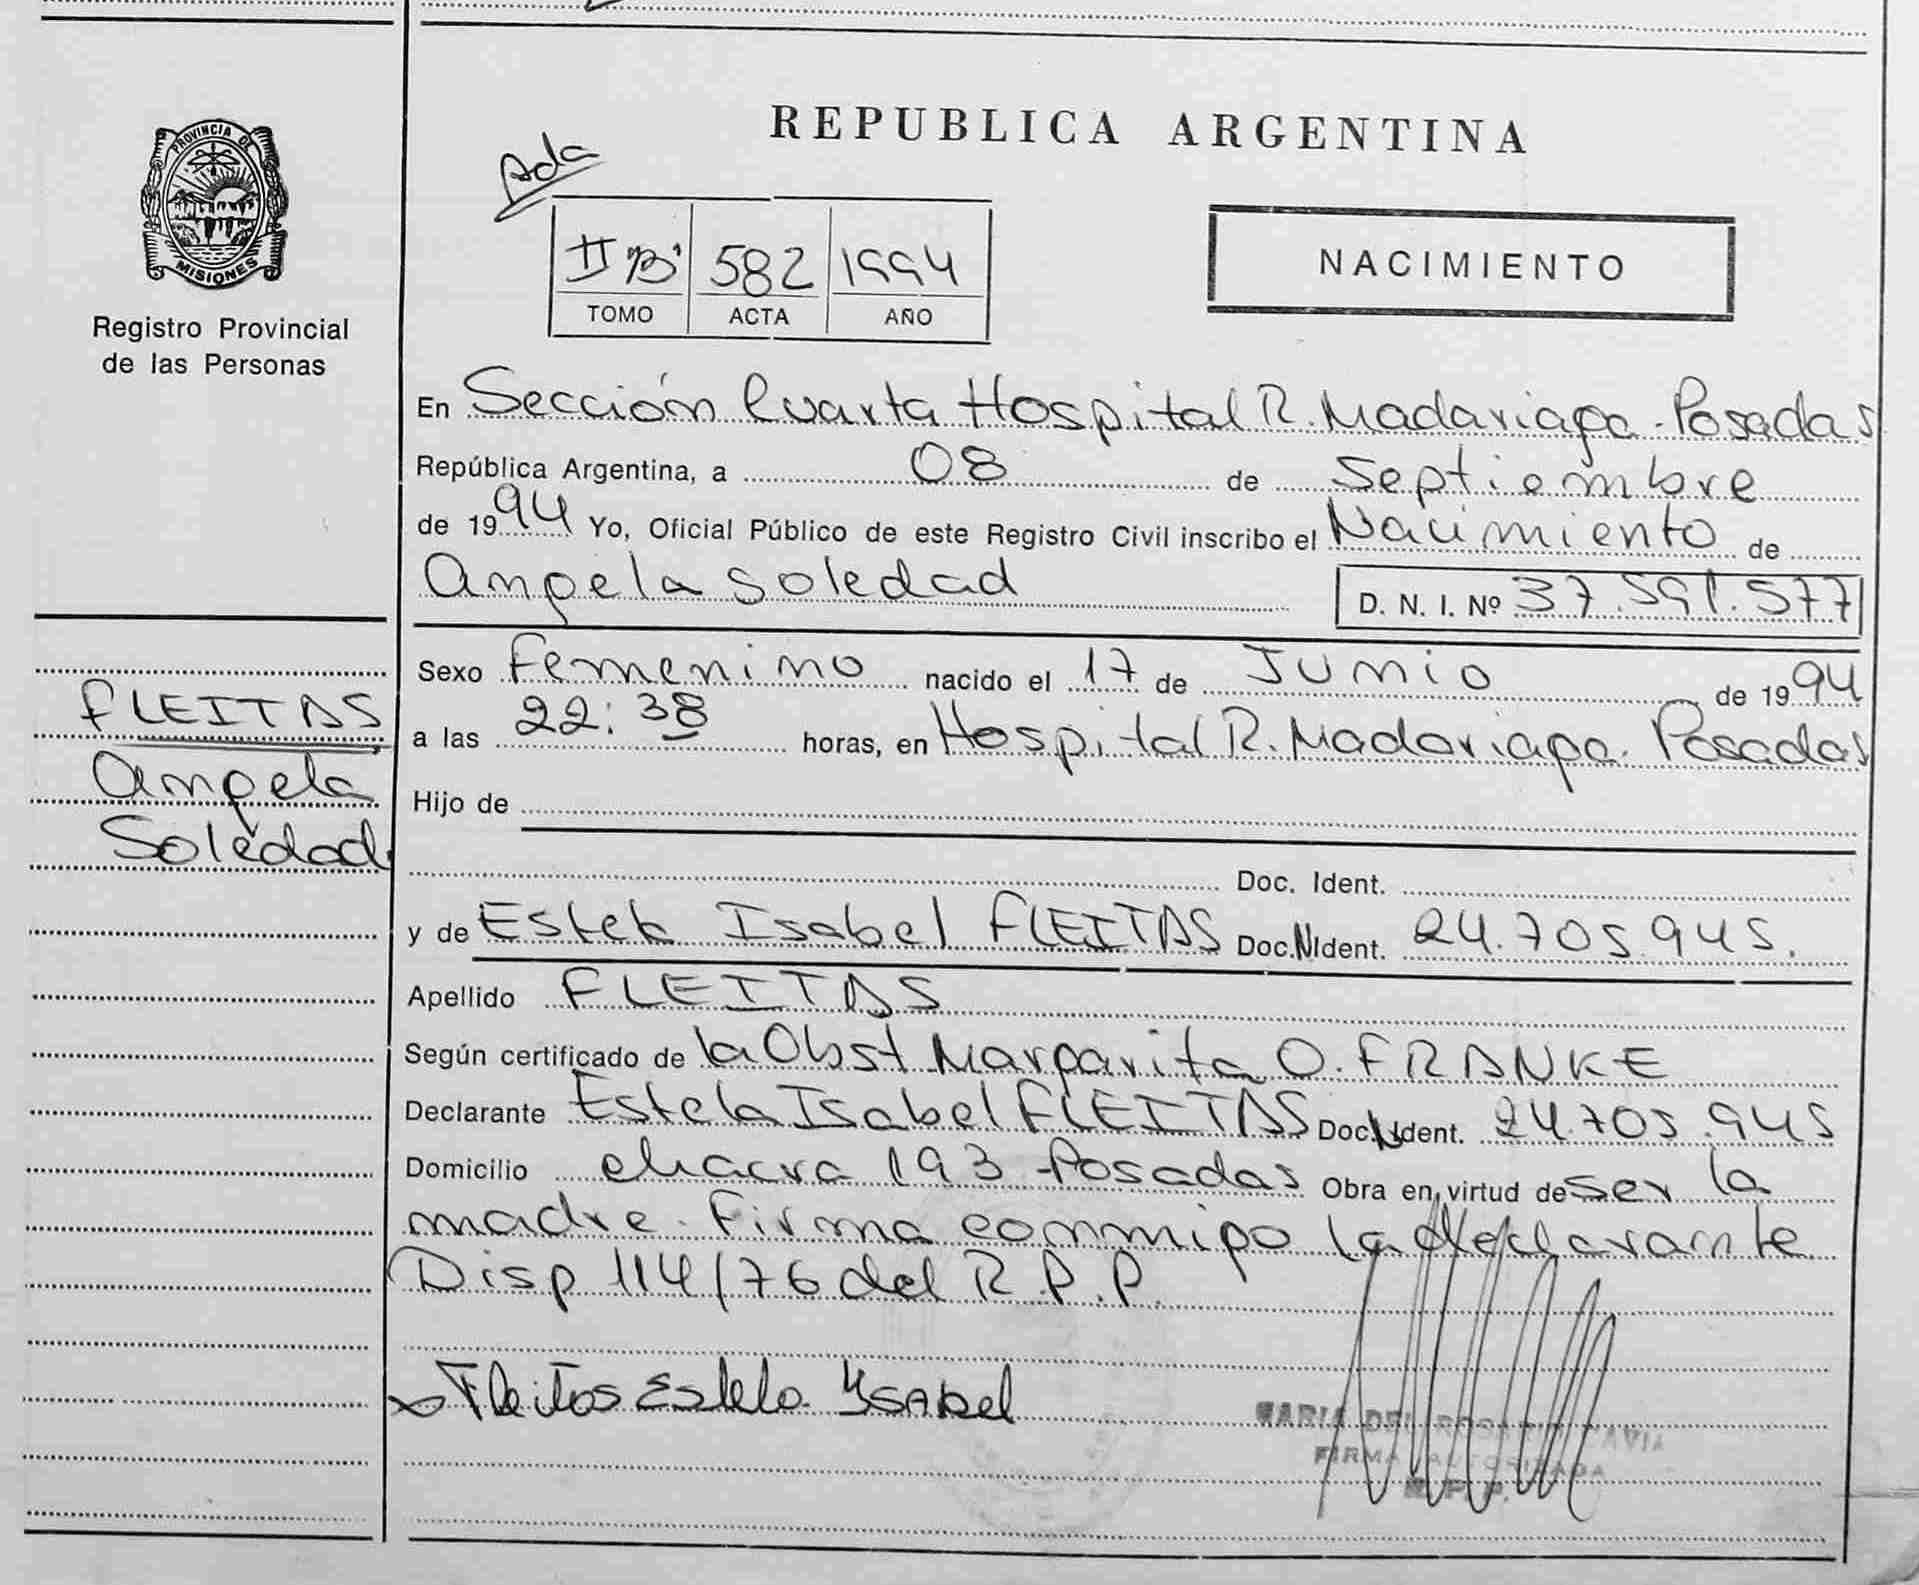 PROVINCIA DE
MISIONES
Registro Provincial
de las Personas
FLEITAS
Angela
Soledad
REPUBLICA ARGENTINA
Ada
II "B" 582 1994
TOMO ACTA AÑO
NACIMIENTO
En Sección Cuarta Hospital R. Madariaga - Posadas
República Argentina, a 08 de septiembre
de 1994 Yo, Oficial Público de este Registro Civil inscribo el Nacimiento de
Angela Soledad D. N. I. Nº 37.591.577
Sexo Femenino nacido el 17 de Junio de 1994
a las 22:38 horas, en Hospital R. Madariaga. Posadas
Hijo de
Doc. Ident.
y de Estela Isabel FLEITAS Doc.N Ident. 24.705.945.
Apellido FLEITAS
Según certificado de la Obst Margarita O. FRANKE
Declarante Estela Isabel FLEITAS Doc.N Ident. 24.705.945
Domicilio chacra 193 - Posadas Obra en virtud de ser la
madre. Firma conmigo la declarante
Disp 114/76 del R.P.P.
Fleitas Estela YSABEL
MARIA DEL ROSARIO
FIRMA AUTORIZADA
R. P. P.